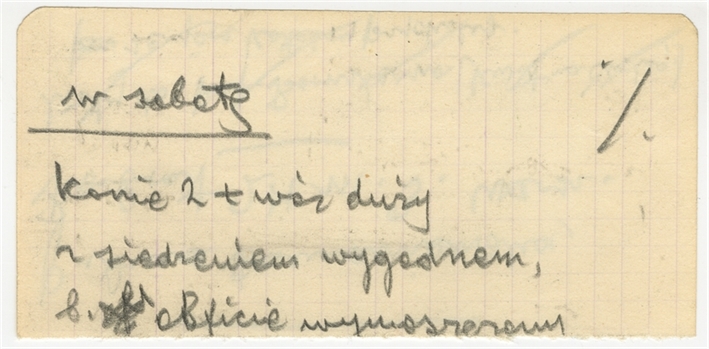 w sobotę
./.
Konie 2 + wóz duży
z siedzeniem wygodnem,
b. obficie wymoszczonem